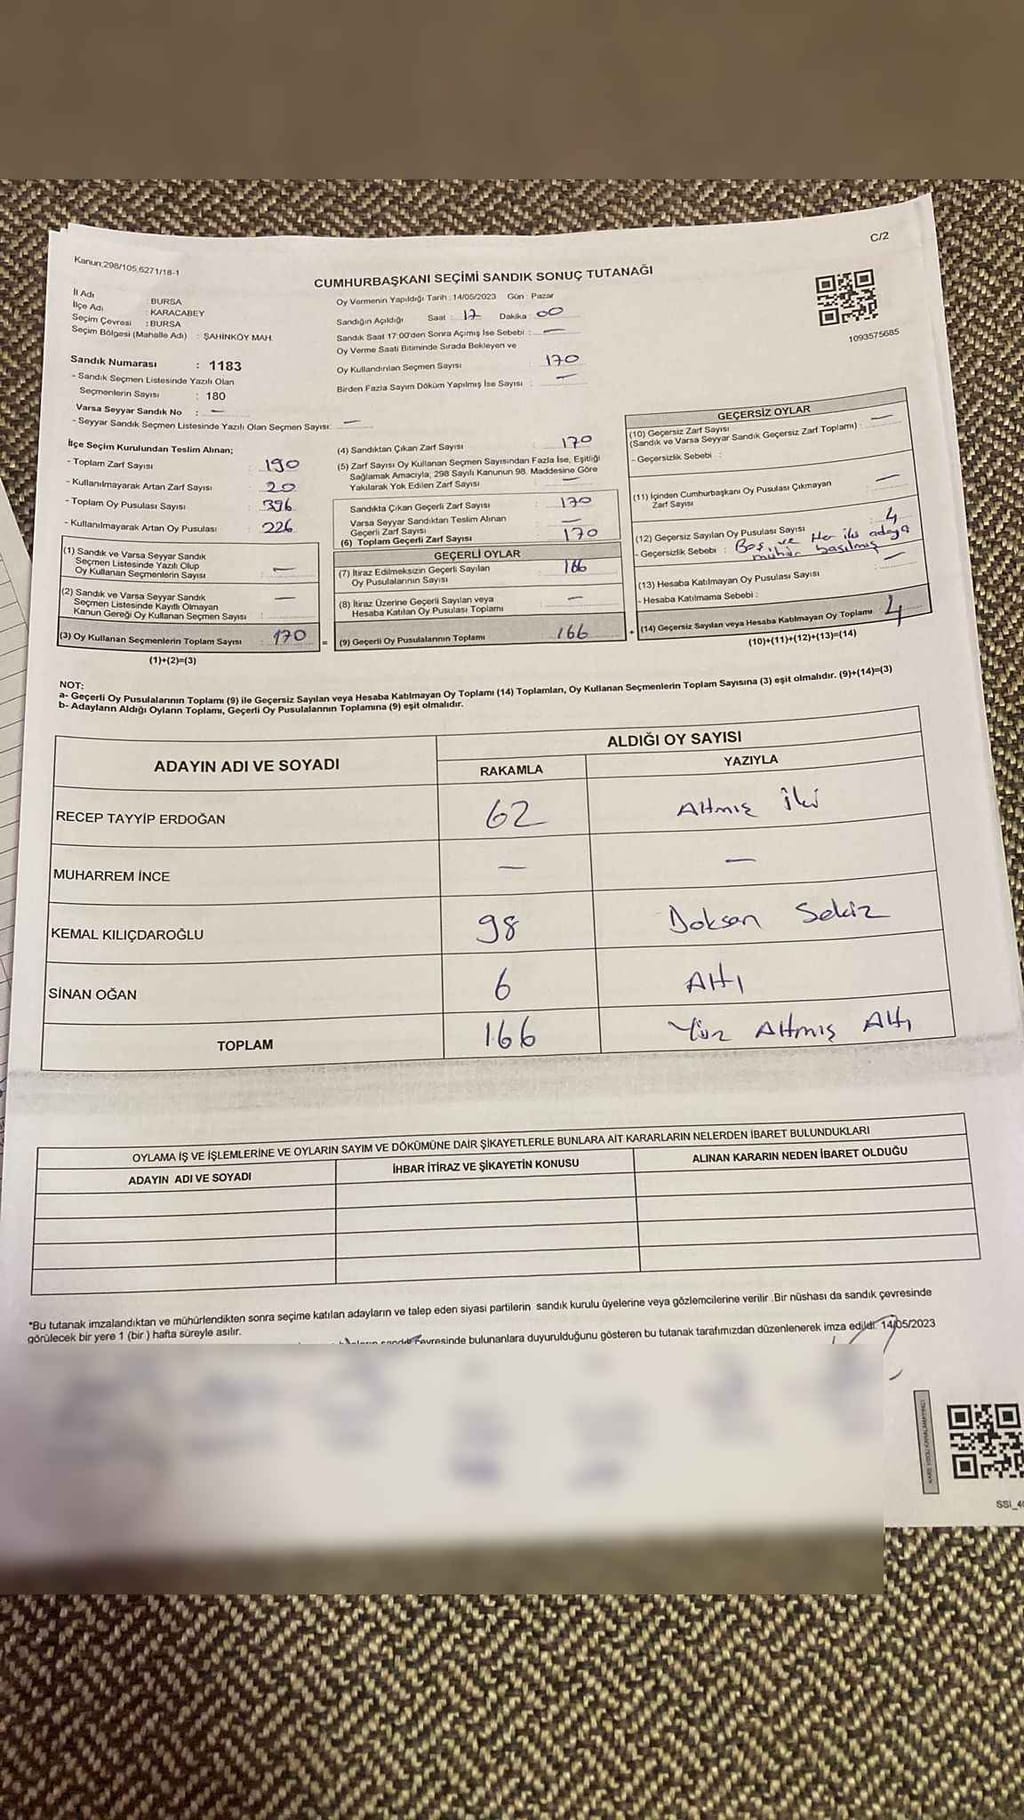 C/2
Kanun:298/105,6271/18-1
CUMHURBAŞKANI SEÇİMİ SANDIK SONUÇ TUTANAĞI
İl Adı : BURSA
İlçe Adı : KARACABEY
Seçim Çevresi : BURSA
Seçim Bölgesi (Mahalle Adı) : ŞAHİNKÖY MAH.
Sandık Numarası : 1183
- Sandık Seçmen Listesinde Yazılı Olan
Seçmenlerin Sayısı : 180
Varsa Seyyar Sandık No : —
- Seyyar Sandık Seçmen Listesinde Yazılı Olan Seçmen Sayısı: —
Oy Vermenin Yapıldığı Tarih : 14/05/2023 Gün : Pazar
Sandığın Açıldığı Saat : 17 Dakika : 00
Sandık Saat 17:00'den Sonra Açımış İse Sebebi : —
Oy Verme Saati Bitiminde Sırada Bekleyen ve
Oy Kullandırılan Seçmen Sayısı : 170
Birden Fazla Sayım Döküm Yapılmış İse Sayısı : —
1093575685
İlçe Seçim Kurulundan Teslim Alınan;
- Toplam Zarf Sayısı : 190
- Kullanılmayarak Artan Zarf Sayısı : 20
- Toplam Oy Pusulası Sayısı : 396
- Kullanılmayarak Artan Oy Pusulası : 226
(1) Sandık ve Varsa Seyyar Sandık
Seçmen Listesinde Yazılı Olup
Oy Kullanan Seçmenlerin Sayısı : —
(2) Sandık ve Varsa Seyyar Sandık
Seçmen Listesinde Kayıtlı Olmayan
Kanun Gereği Oy Kullanan Seçmen Sayısı : —
(3) Oy Kullanan Seçmenlerin Toplam Sayısı : 170
(1)+(2)=(3)
=
(4) Sandıktan Çıkan Zarf Sayısı : 170
(5) Zarf Sayısı Oy Kullanan Seçmen Sayısından Fazla İse, Eşitliği
Sağlamak Amacıyla; 298 Sayılı Kanunun 98. Maddesine Göre
Yakılarak Yok Edilen Zarf Sayısı : —
Sandıkta Çıkan Geçerli Zarf Sayısı : 170
Varsa Seyyar Sandıktan Teslim Alınan
Geçerli Zarf Sayısı : —
(6) Toplam Geçerli Zarf Sayısı : 170
GEÇERLİ OYLAR
(7) İtiraz Edilmeksizin Geçerli Sayılan
Oy Pusulalarının Sayısı : 166
(8) İtiraz Üzerine Geçerli Sayılan veya
Hesaba Katılan Oy Pusulası Toplamı : —
(9) Geçerli Oy Pusulalarının Toplamı : 166
+
GEÇERSİZ OYLAR
(10) Geçersiz Zarf Sayısı
(Sandık ve Varsa Seyyar Sandık Geçersiz Zarf Toplamı) : —
- Geçersizlik Sebebi :
(11) İçinden Cumhurbaşkanı Oy Pusulası Çıkmayan
Zarf Sayısı : —
(12) Geçersiz Sayılan Oy Pusulası Sayısı : 4
- Geçersizlik Sebebi : Boş ve Her iki adaya
mühür basılmış
(13) Hesaba Katılmayan Oy Pusulası Sayısı : —
- Hesaba Katılmama Sebebi :
(14) Geçersiz Sayılan veya Hesaba Katılmayan Oy Toplamı : 4
(10)+(11)+(12)+(13)=(14)
NOT:
a- Geçerli Oy Pusulalarının Toplamı (9) ile Geçersiz Sayılan veya Hesaba Katılmayan Oy Toplamı (14) Toplamları, Oy Kullanan Seçmenlerin Toplam Sayısına (3) eşit olmalıdır. (9)+(14)=(3)
b- Adayların Aldığı Oyların Toplamı, Geçerli Oy Pusulalarının Toplamına (9) eşit olmalıdır.
ADAYIN ADI VE SOYADI ALDIĞI OY SAYISI
RAKAMLA YAZIYLA
RECEP TAYYİP ERDOĞAN 62 Altmış İki
MUHARREM İNCE — —
KEMAL KILIÇDAROĞLU 98 Doksan Sekiz
SİNAN OĞAN 6 Altı
TOPLAM 166 Yüz Altmış Altı
OYLAMA İŞ VE İŞLEMLERİNE VE OYLARIN SAYIM VE DÖKÜMÜNE DAİR ŞİKAYETLERLE BUNLARA AİT KARARLARIN NELERDEN İBARET BULUNDUKLARI
ADAYIN ADI VE SOYADI İHBAR İTİRAZ VE ŞİKAYETİN KONUSU ALINAN KARARIN NEDEN İBARET OLDUĞU
*Bu tutanak imzalandıktan ve mühürlendikten sonra seçime katılan adayların ve talep eden siyasi partilerin sandık kurulu üyelerine veya gözlemcilerine verilir .Bir nüshası da sandık çevresinde
görülecek bir yere 1 (bir ) hafta süreyle asılır.
çevresinde bulunanlara duyurulduğunu gösteren bu tutanak tarafımızdan düzenlenerek imza edildi. 14/05/2023